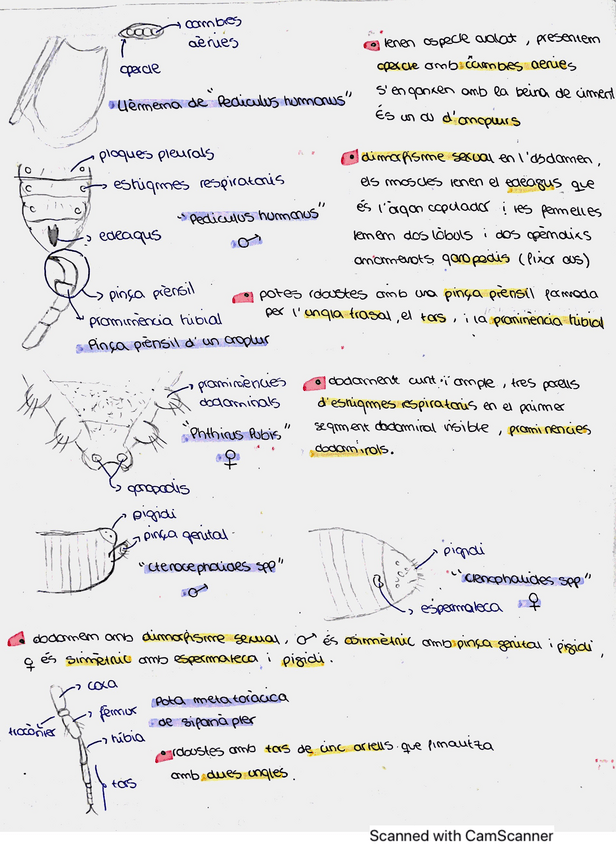 cambres
aèries
opercle
Llémena de "Pediculus humanus"
Tenen aspecte ovalat, presenten
opercle amb cambres aèries
s'enganxen amb la beina de ciment
És un ou d'anoplurs
plaques pleurals
estigmes respiratoris
"Pediculus humanus"
♂
edeagus
dimorfisme sexual en l'abdomen,
els mascles tenen el edeagus que
és l'òrgan copulador i les femelles
tenen dos lòbuls i dos apèndixs
anomenats gonopodis (fixar ous)
pinça prènsil
prominència tibial
Pinça prènsil d'un anoplur
potes robustes amb una pinça prènsil formada
per l'ungla tarsal, el tars, i la prominència tibial
prominències
abdominals
"Phthirus Pubis"
♀
gonopodis
abdoment curt i ample, tres parells
d'estigmes respiratoris en el primer
segment abdominal visible, prominències
abdominals.
pigidi
pinça genital
"Ctenocephalides spp"
♂
pigidi
"Ctenocephalides spp"
♀
espermateca
abdomen amb dimorfisme sexual, ♂ és asimètric amb pinça genital i pigidi,
♀ és simètric amb espermateca i pigidi.
coxa
trocànter
fèmur
tíbia
tars
Pota metatoràcica
de sifonàpter
robustes amb tars de cinc artells que finalitza
amb dues ungles.
Scanned with CamScanner